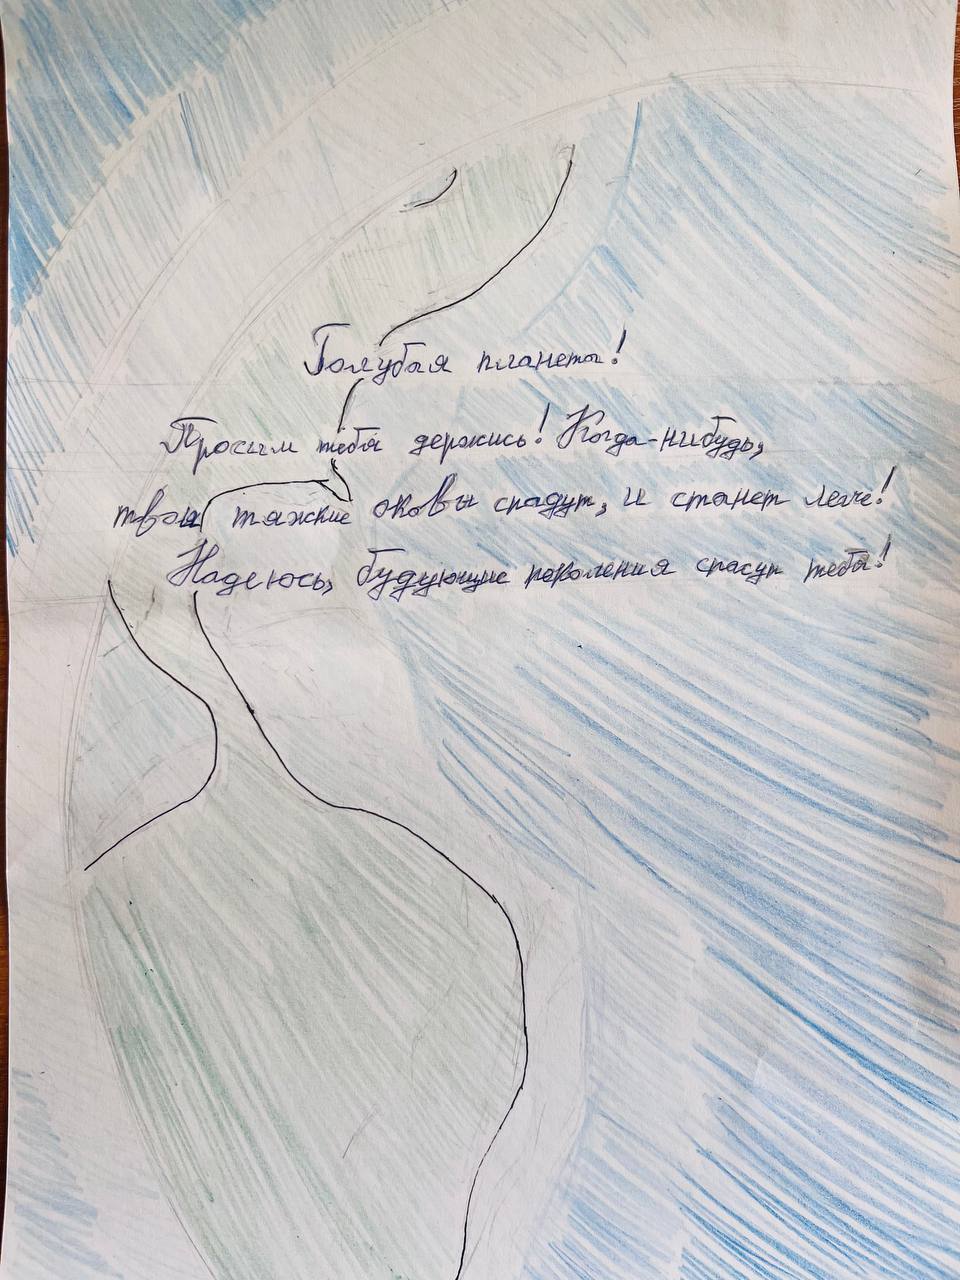 Голубая планета!
Просим тебя держись! Когда-нибудь,
твои тяжкие оковы спадут, и станет легче!
Надеюсь, будующие поколения спасут тебя!